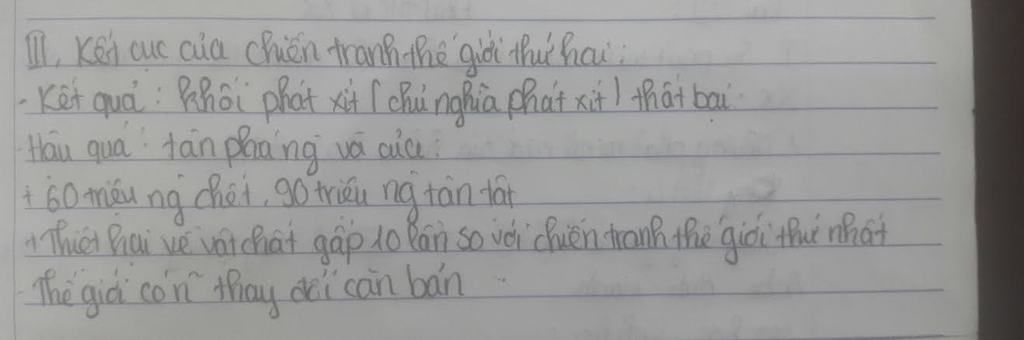 III, Kết cục của chiến tranh thế giới thứ hai:
- Kết quả: khối phát xít (chủ nghĩa phát xít) thất bại
- Hậu quả: tàn phá ng và của:
+ 60 triệu ng chết, 90 triệu ng tàn tật
+ Thiệt hại về vật chất gấp 10 lần so với chiến tranh thế giới thứ nhất
- Thế giới có n~ thay đổi căn bản